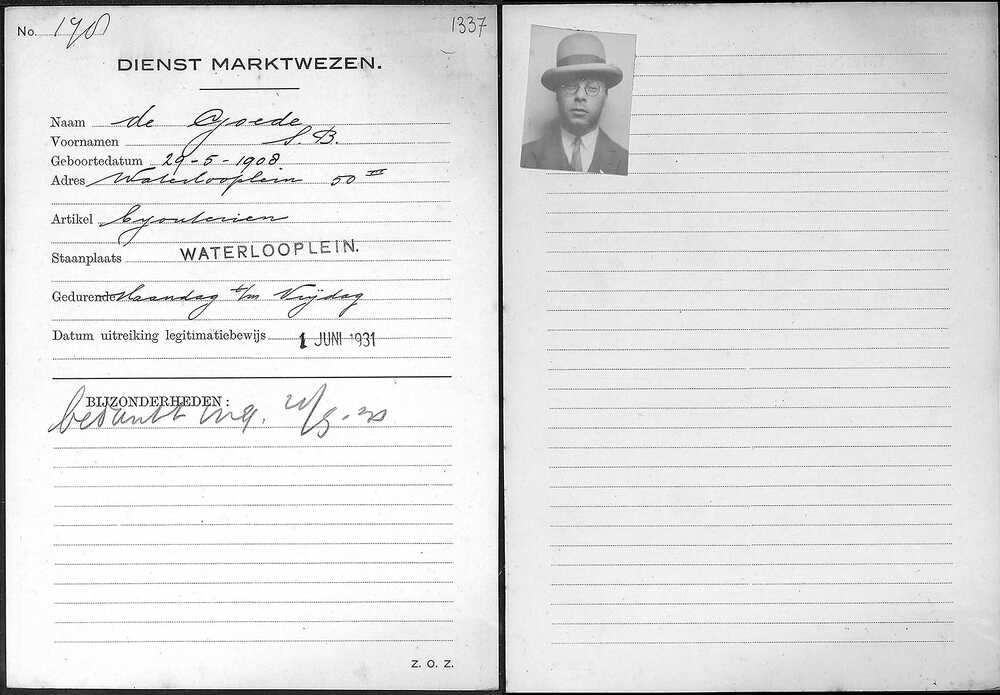 No. 190
1337
DIENST MARKTWEZEN.
Naam de Goede
Voornamen S. B.
Geboortedatum 29-5-1908
Adres Waterlooplein 50 III
Artikel Byouterien
Staanplaats WATERLOOPLEIN.
Gedurende Maandag t/m Vrijdag
Datum uitreiking legitimatiebewijs 1 JUNI 1931
BIJZONDERHEDEN:
bedankt ing.
Z. O. Z.